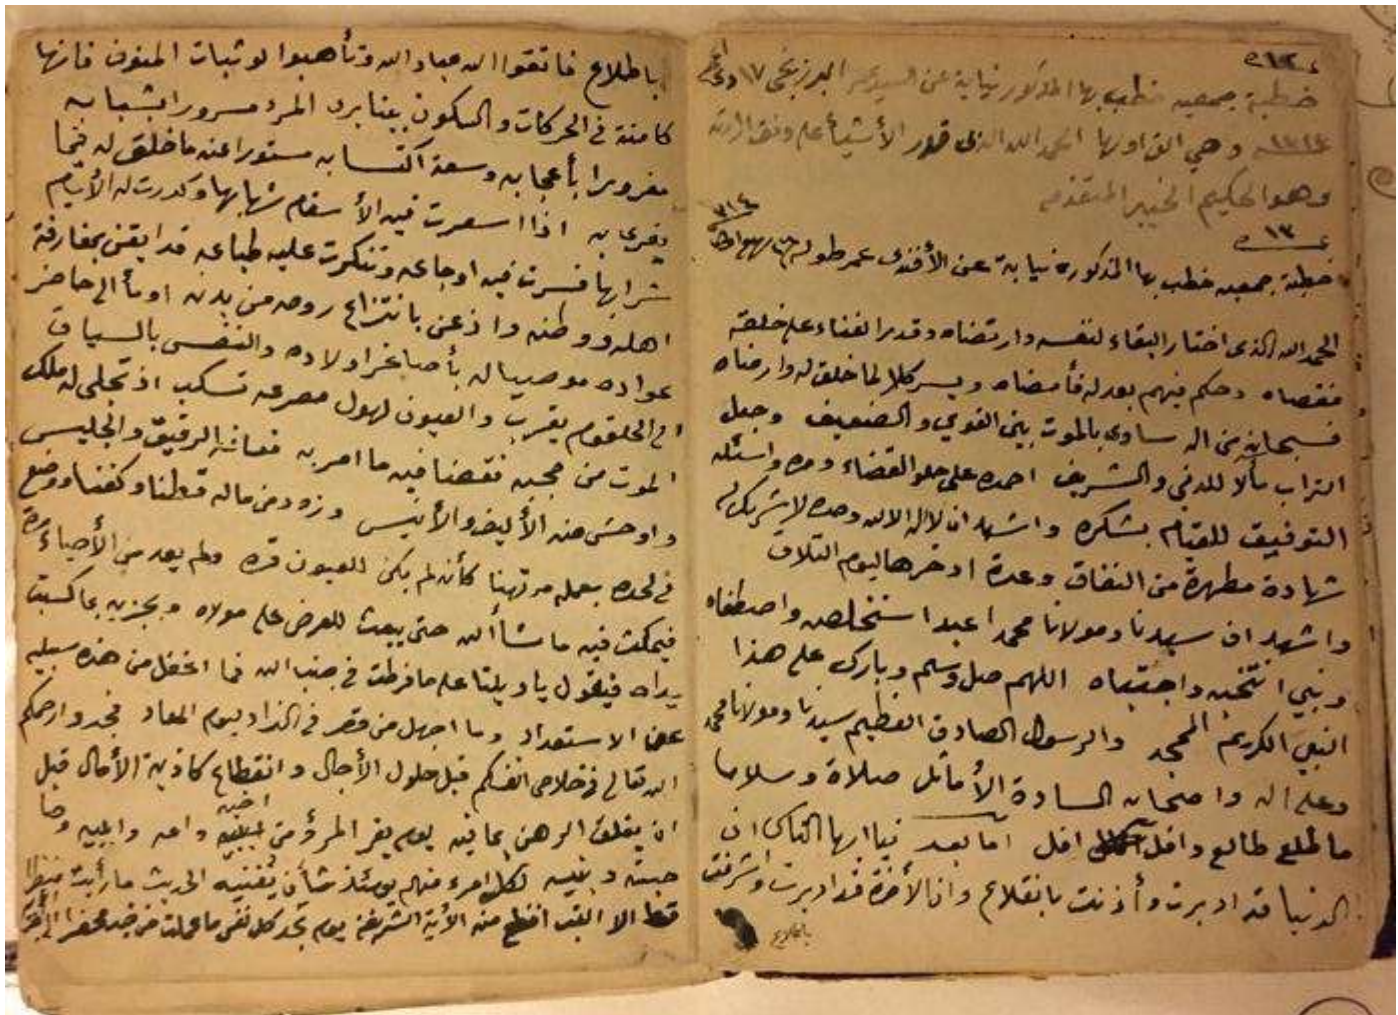 ١٢
خطبة جمعيه خطب بها المذكور نيابة عن السيد البرزنجي ١٧
وهي التي اولها الحمد الله الذى قدر الأشيأ على وفق ارادته
وهو الحكيم الخبير المتقدمه
١٣
خطبة جمعيه خطب بها المذكور نيابة عن الأفندى عمر
الحمد الله الذى اختار البقاء لنفسه وارتضاه وقدر الفناء على خلقه
فقضاه وحكم فيهم بعدله فأمضاه ويسر كلا لما خلق له وارضاه
فسبحانه من اله ساوى بالموت بين القوي والضعيف وجعل
التراب مآلا للدني والشريف احمده على حلو القضاء ومره واسئله
التوفيق للقيام بشكره واشهد ان لا اله الا الله وحده لا شريك له
شهادة مطهرة من النفاق وعدة ادخرها ليوم التلاق
واشهد ان سيدنا ومولانا محمدا عبدا استخلصه واصطفاه
ونبي انتخبه واجتباه اللهم صل وسلم وبارك على هذا
النبي الكريم الممجد والرسول الصادق العظيم سيدنا ومولانا محمد
وعلى اله واصحابه السادة الأماثل صلاة وسلاما
ما طلع طالع وافل افل اما بعد فيا ايها الناس ان
الدنيا قد ادبرت وأذنت بانقلاع وان الأخرة قد ادبرت واشرفت
باطلاع
باطلاع فاتقوا الله عباد الله وتأهبوا لوثبات المنون فانها
كامنة في الحركات والسكون بينما يرى المرء مسرورا بشبابه
مغرورا بأعجابه وسعة اكتسابه مستورا عنه ما خلق له فيما
يغرى به اذا اسعرت فيه الأسقام شهابها وكدرت له الأيام
شرابها فسرت فيه اوجاعه وتنكرت عليه طباعه قد ايقن بمفارقة
اهله ووطنه واذعن بانتزاع روحه من بدنه اومأ الى حاضر
عواده موصيا له بأصاغر اولاده والنفس بالسياق
الى الحلقوم يقرب والعيون لهول مصرعه تسكب اذ تجلى له ملك
الموت من حجبه فقضا فيه ما امر به فعافه الرفيق والجليس
واوحش منه الأليف والأنيس وزود من ماله قطنا وكفنا ووضع
في لحده بعمله مرتهنا كأن لم يكن للعيون قره ولم يعد من الأحياء مرة
فيمكث فيه ما شأ الله حتى يبعث للعرض على مولاه ويجزيه بما كسبت
يداه فيقول يا ويلتا على ما فرطت في جنب الله فما اغفل من هذه سبيله
عن الاستعداد وما اجهل من قصر في الزاد ليوم المعاد فجدوا رحمكم
الله تعالى في خلاص انفسكم قبل حلول الأجال وانقطاع كاذبة الأمال قبل
ان يغلق الرهن بما فيه يوم يفر المرؤ من اخيه وامه وابيه وصا
حبته وبنيه لكل امرء منهم يومئذ شأن يغنيه الحديث ما رأيت منظرا
قط الا القبر افظع منه الأية الشريفة يوم تجد كل نفس ما عملت من خير محضرا